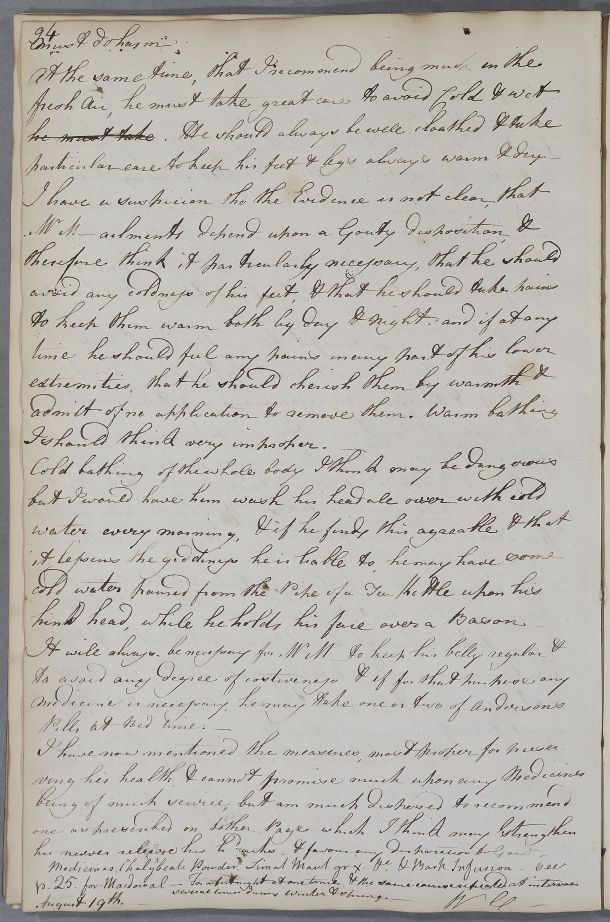 24
must do harm
At the same time, that I recommend being much in the
fresh Air, he must take great care to avoid Cold & wet
he must take. He should always be well cloathed & take
particular care to keep his feet & legs always warm & dry —
I have a suspicion tho the Evidence is not clear, that
Mr M— ailments depend upon a Gouty disposition, &
therefore think it particularly necessary, that he should
avoid any coldness of his feet, & that he should take pains
to keep them warm both by day & night. and if at any
time he should feel any pains in any part of his lower
extremities, that he should cherish them by warmth &
admitt of no application to remove them. Warm bathing
I should think very improper.
Cold bathing of the whole body I think may be dangerous
but I would have him wash his head all over with cold
water every morning, & if he finds this agreable & that
it lessens the giddiness he is liable to, he may have some
cold water poured from the Pipe of a Tea Kettle upon his
hind head, while he holds his face over a Bason
It will always be necessary for Mr M to keep his belly regular &
to avoid any degree of costiveness & if for that purpose any
medicine is necessary he may take one or two of Andersons
Pills at Bed time. —
I have now mentioned the measures, most proper for preser-
ving his health, & cannot promise much upon any Medicines
being of much service, but am much disposed to recommend
one as prescribed on tother Page which I think may strengthen
his nerves & favour any disposition to Gout —
Medicines. Chalybeate Powder. Limat Mart gr x & Bark Infusion — vee
p. 25. for Macdowal — For a fortnight at one time & the same course repeated at intervals
several times during winter & spring —
August 19th. W C